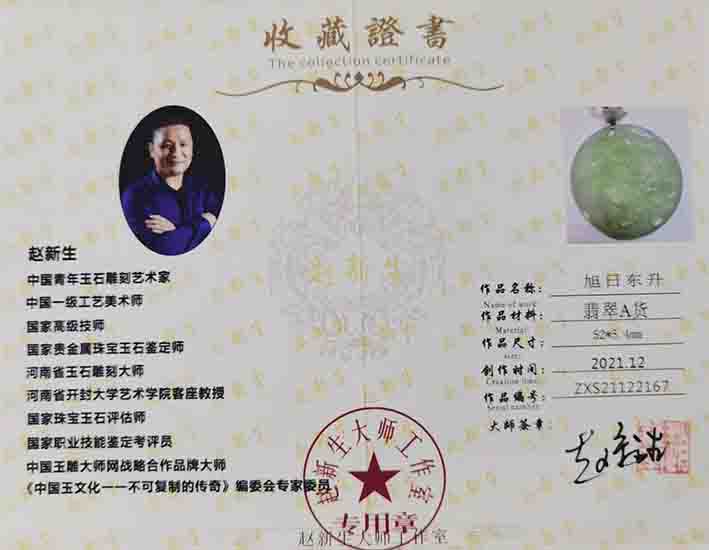 收藏證書
The collection certificate
赵新生
中国青年玉石雕刻艺术家
中国一级工艺美术师
国家高级技师
国家贵金属珠宝玉石鉴定师
河南省玉石雕刻大师
河南省开封大学艺术学院客座教授
国家珠宝玉石评估师
国家职业技能鉴定考评员
中国玉雕大师网战略合作品牌大师
《中国玉文化一一不可复制的传奇》编委会专家委员
赵新生
作品名称: 旭日东升
Name of work:
作品材料: 翡翠A货
Material:
作品尺寸: 52*5.4mm
size:
创作时间: 2021.12
Creation time:
作品编号: ZXS21122167
Serial number:
大师签章:
赵新生大师工作室
专用章
赵新生大师工作室